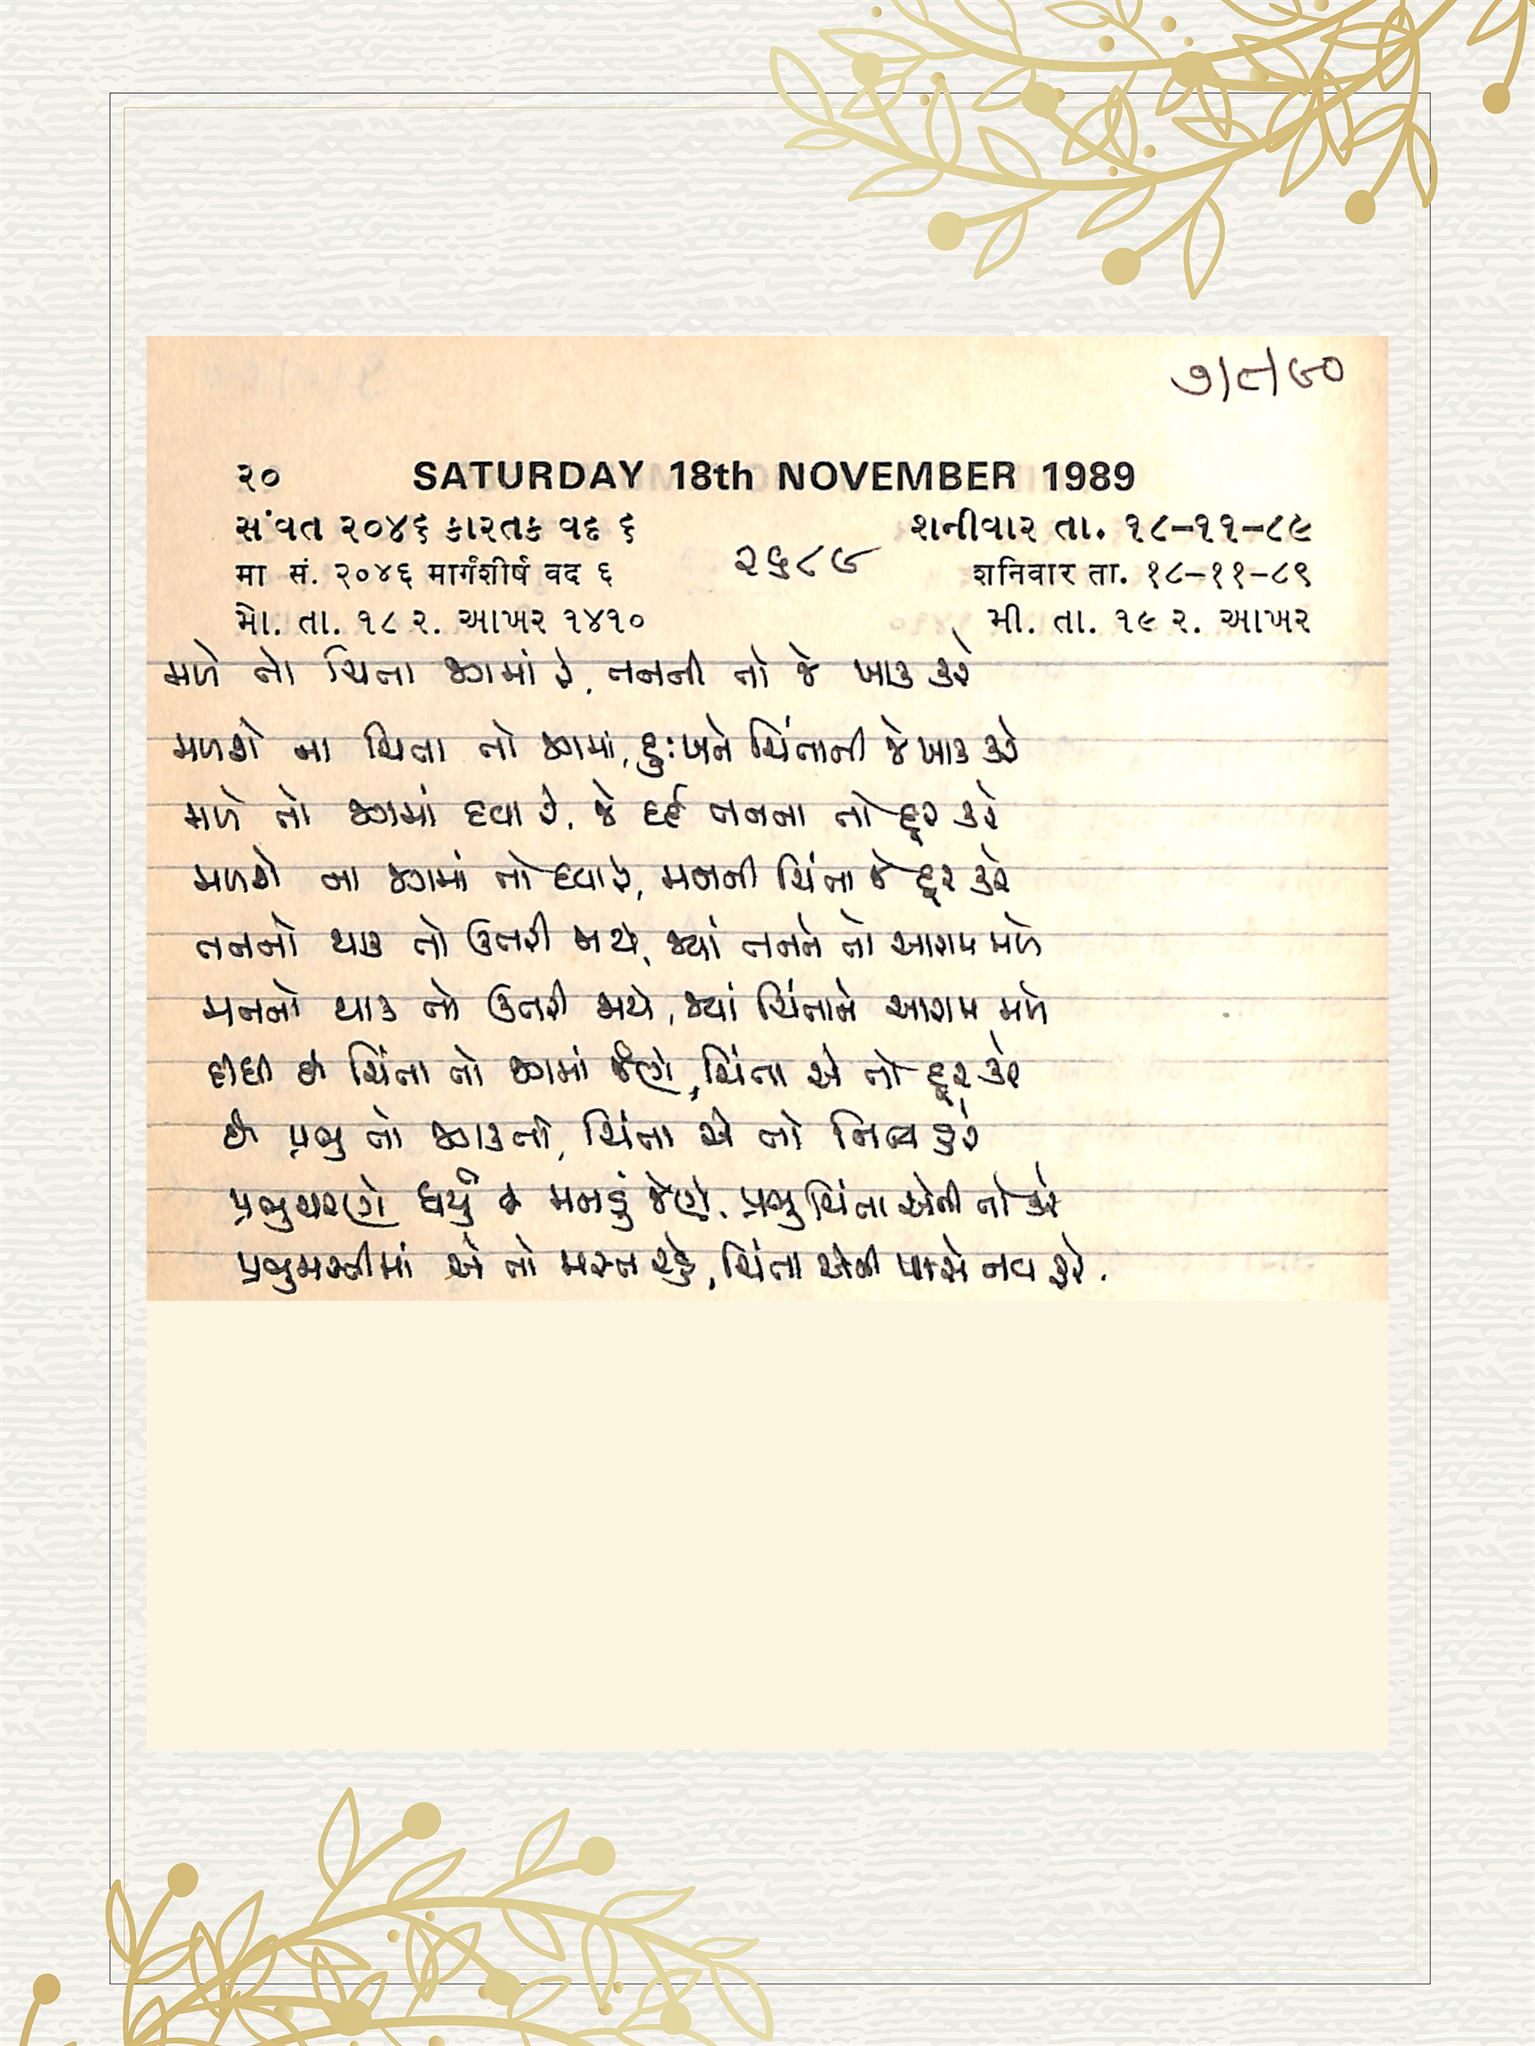 ૭/૮/૯૦
૨૦ SATURDAY 18th NOVEMBER 1989
સંવત ૨૦૪૬ કારતક વદ ૬ શનીવાર તા. ૧૮-૧૧-૮૯
मा सं. २०४६ मार्गशीर्ष वद ६ ૨૬૮૯ शनिवार ता. १८-११-८९
મો. તા. ૧૮ ર. આખર ૧૪૧૦ મી. તા. ૧૯ ર. આખર
મળે તો ચિતા જગમાં રે, તનની તો જે ખાક કરે
મળશે ના ચિતા તો જગમાં, દુઃખને ચિંતાની જે ખાક કરે
મળે તો જગમાં દવા રે, જે દર્દ તનના તો દૂર કરે
મળશે ના જગમાં તો દવા રે, મનની ચિંતા જે દૂર કરે
તનનો થાક તો ઉતરી જાયે, જ્યાં તનને તો આરામ મળે
મનનો થાક તો ઉતરી જાયે, જ્યાં ચિંતાને આરામ મળે
દીધી છે ચિંતા તો જગમાં જેણે, ચિંતા એ તો દૂર કરે
છે પ્રભુ તો જગકર્તા, ચિંતા એ તો નિત્ય કરે
પ્રભુચરણે ધર્યું છે મનડું જેણે, પ્રભુ ચિંતા એની તો કરે
પ્રભુમસ્તીમાં એ તો મસ્ત રહે, ચિંતા એની પાસે નવ ફરે.